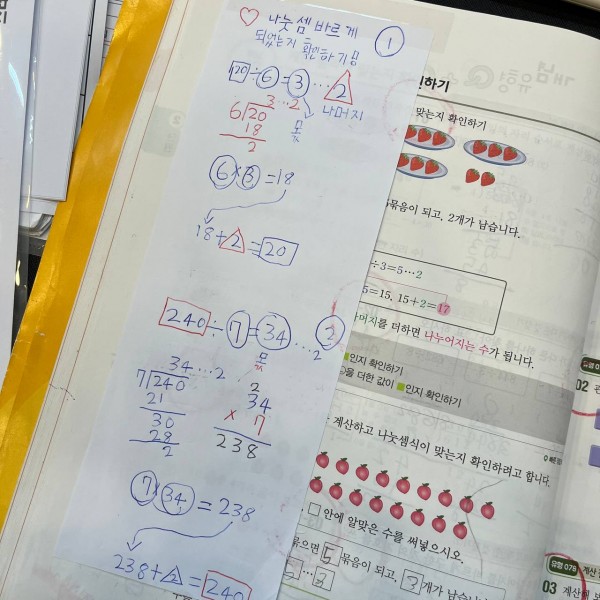 ♡ 나눗셈 바르게
되었는지 확인하기!!
①
20÷6=3…2
몫
나머지
3…2
6)20
18
2
6×3=18
18+2=20
240÷7=34…2
몫
34…2
7)240
21
30
28
2
2
34
× 7
238
7×34=238
238+2=240
개념유형
인하기
맞는지 확인하기
묶음이 되고, 2개가 남습니다.
÷3=5…2
5=15, 15+2=17
머지를 더하면 나누어지는 수가 됩니다.
인지 확인하기
을 더한 값이 인지 확인하기
계산하고 나눗셈식이 맞는지 확인하려고 합니다.
□ 안에 알맞은 수를 써넣으시오.
묶으면 5 묶음이 되고, 3 개가 남습니다.
02
유형 078
계산
03 계산해